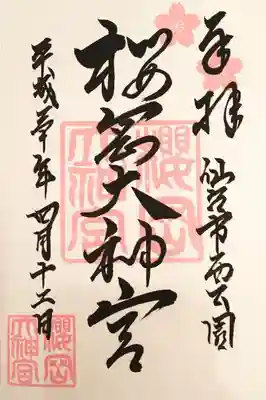 奉拝
仙台市西公園
桜岡大神宮
平成三十年四月十二日
櫻岡
大神宮
櫻岡
大神宮